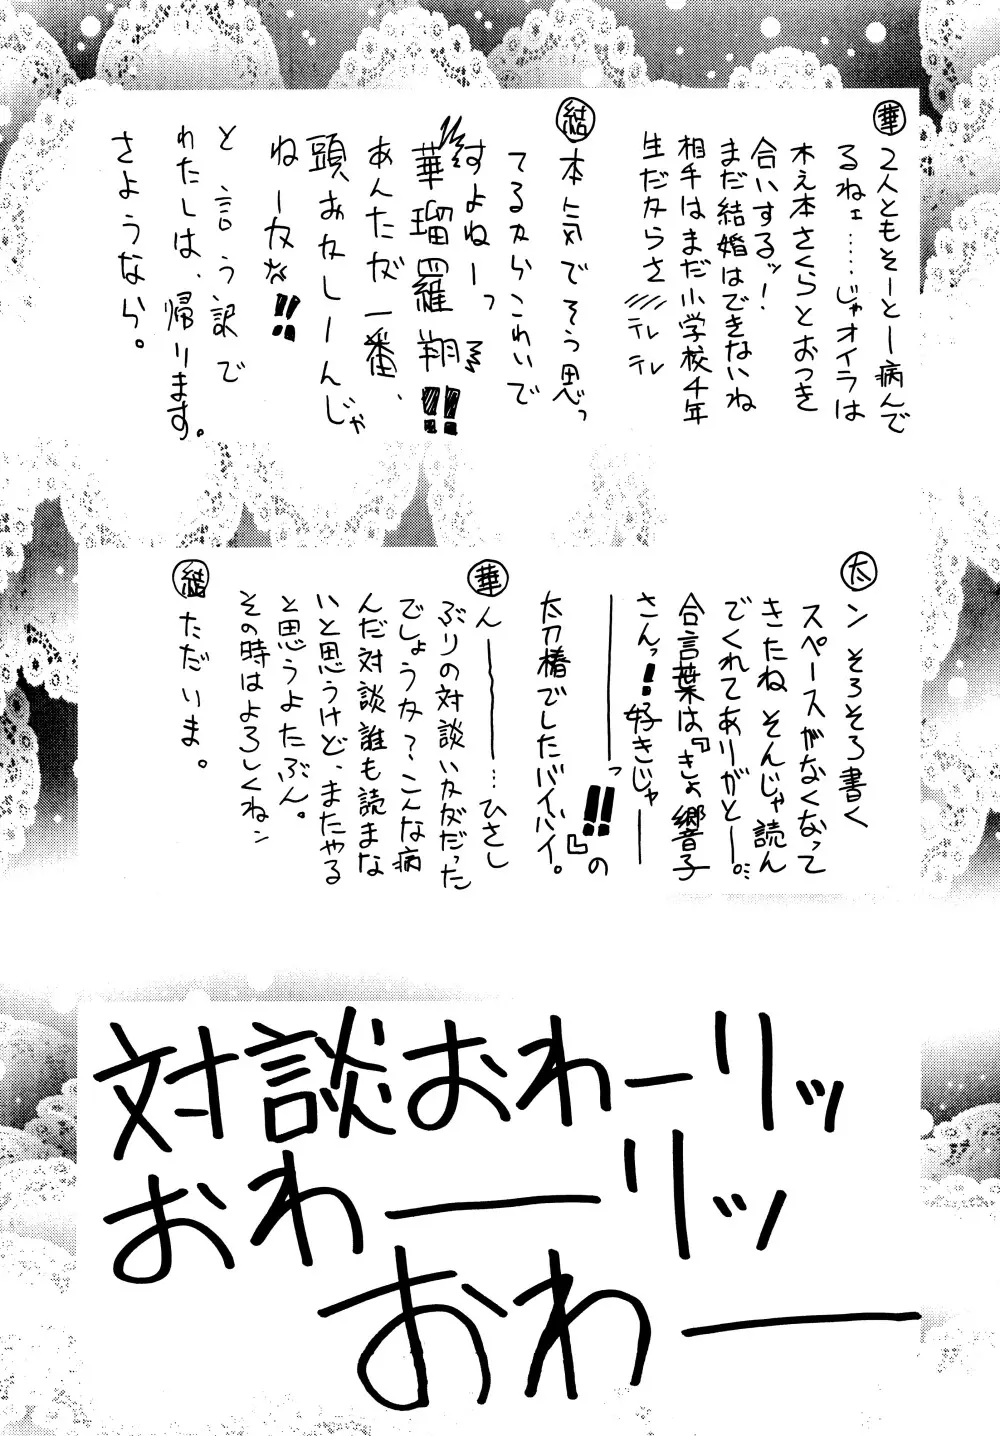 華 2人ともそーとー病んで
るねェ……じゃオイラは
木え本さくらとおつき
合いするッ!
まだ結婚はできないね
相手はまだ小学校4年
生だからさ テレテレ
結 本気でそう思っ
てるからこわいで
すよねーっ
華瑠羅翔!!
あんたが一番、
頭おかしーんじゃ
ねーか!!
と言う訳で
わたしは、帰ります。
さようなら。
太 ン そろそろ書く
スペースがなくなって
きたね そんじゃ読ん
でくれてありがとー。
合言葉は『きょ響子
さんっ!!好きじゃー
ーーーっ!!』の
太刀椿でしたバイバイ。
華 んーーー…ひさし
ぶりの対談いかがだった
でしょうか?こんな病
んだ対談誰も読まな
いと思うけど、またやる
と思うよたぶん。
その時はよろしくねン
結 ただいま。
対談おわーリッ
おわーリッ
おわー